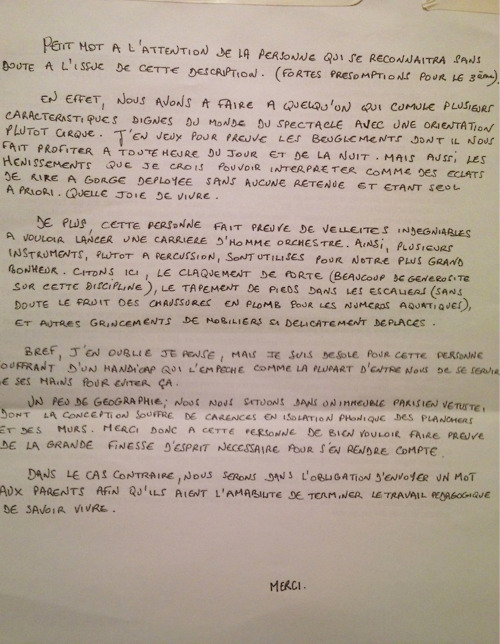 PETIT MOT A L'ATTENTION DE LA PERSONNE QUI SE RECONNAITRA SANS
DOUTE A L'ISSUE DE CETTE DESCRIPTION. (FORTES PRESOMPTIONS POUR LE 3ème).
EN EFFET, NOUS AVONS A FAIRE A QUELQU'UN QUI CUMULE PLUSIEURS
CARACTERISTIQUES DIGNES DU MONDE DU SPECTACLE AVEC UNE ORIENTATION
PLUTOT CIRQUE. J'EN VEUX POUR PREUVE LES BEUGLEMENTS DONT IL NOUS
FAIT PROFITER A TOUTE HEURE DU JOUR ET DE LA NUIT. MAIS AUSSI, LES
HENISSEMENTS QUE JE CROIS POUVOIR INTERPRETER COMME DES ECLATS
DE RIRE A GORGE DEPLOYEE SANS AUCUNE RETENUE ET ETANT SEUL
A PRIORI. QUELLE JOIE DE VIVRE.
DE PLUS, CETTE PERSONNE FAIT PREUVE DE VELLEITES INDEGNIABLES
A VOULOIR LANCER UNE CARRIERE D'HOMME ORCHESTRE. AINSI, PLUSIEURS
INSTRUMENTS, PLUTOT A PERCUSSION, SONT UTILISES POUR NOTRE PLUS GRAND
BONHEUR. CITONS ICI, LE CLAQUEMENT DE PORTE (BEAUCOUP DE GENEROSITE
SUR CETTE DISCIPLINE), LE TAPEMENT DE PIEDS DANS LES ESCALIERS (SANS
DOUTE LE FRUIT DES CHAUSSURES EN PLOMB POUR LES NUMEROS AQUATIQUES),
ET AUTRES GRINCEMENTS DE MOBILIERS SI DELICATEMENT DEPLACES.
BREF, J'EN OUBLIE JE PENSE, MAIS JE SUIS DESOLE POUR CETTE PERSONNE
OUFFRANT D'UN HANDICAP QUI L'EMPECHE COMME LA PLUPART D'ENTRE NOUS DE SE SERVIR
E SES MAINS POUR EVITER ÇA.
UN PEU DE GEOGRAPHIE; NOUS NOUS SITUONS DANS UN IMMEUBLE PARISIEN VETUSTE,
DONT LA CONCEPTION SOUFFRE DE CARENCES EN ISOLATION PHONIQUE DES PLANCHERS
ET DES MURS. MERCI DONC A CETTE PERSONNE DE BIEN VOULOIR FAIRE PREUVE
DE LA GRANDE FINESSE D'ESPRIT NECESSAIRE POUR S'EN RENDRE COMPTE.
DANS LE CAS CONTRAIRE, NOUS SERONS DANS L'OBLIGATION D'ENVOYER UN MOT
AUX PARENTS AFIN QU'ILS AIENT L'AMABILITE DE TERMINER LE TRAVAIL PEDAGOGIQUE
DE SAVOIR VIVRE.
MERCI.